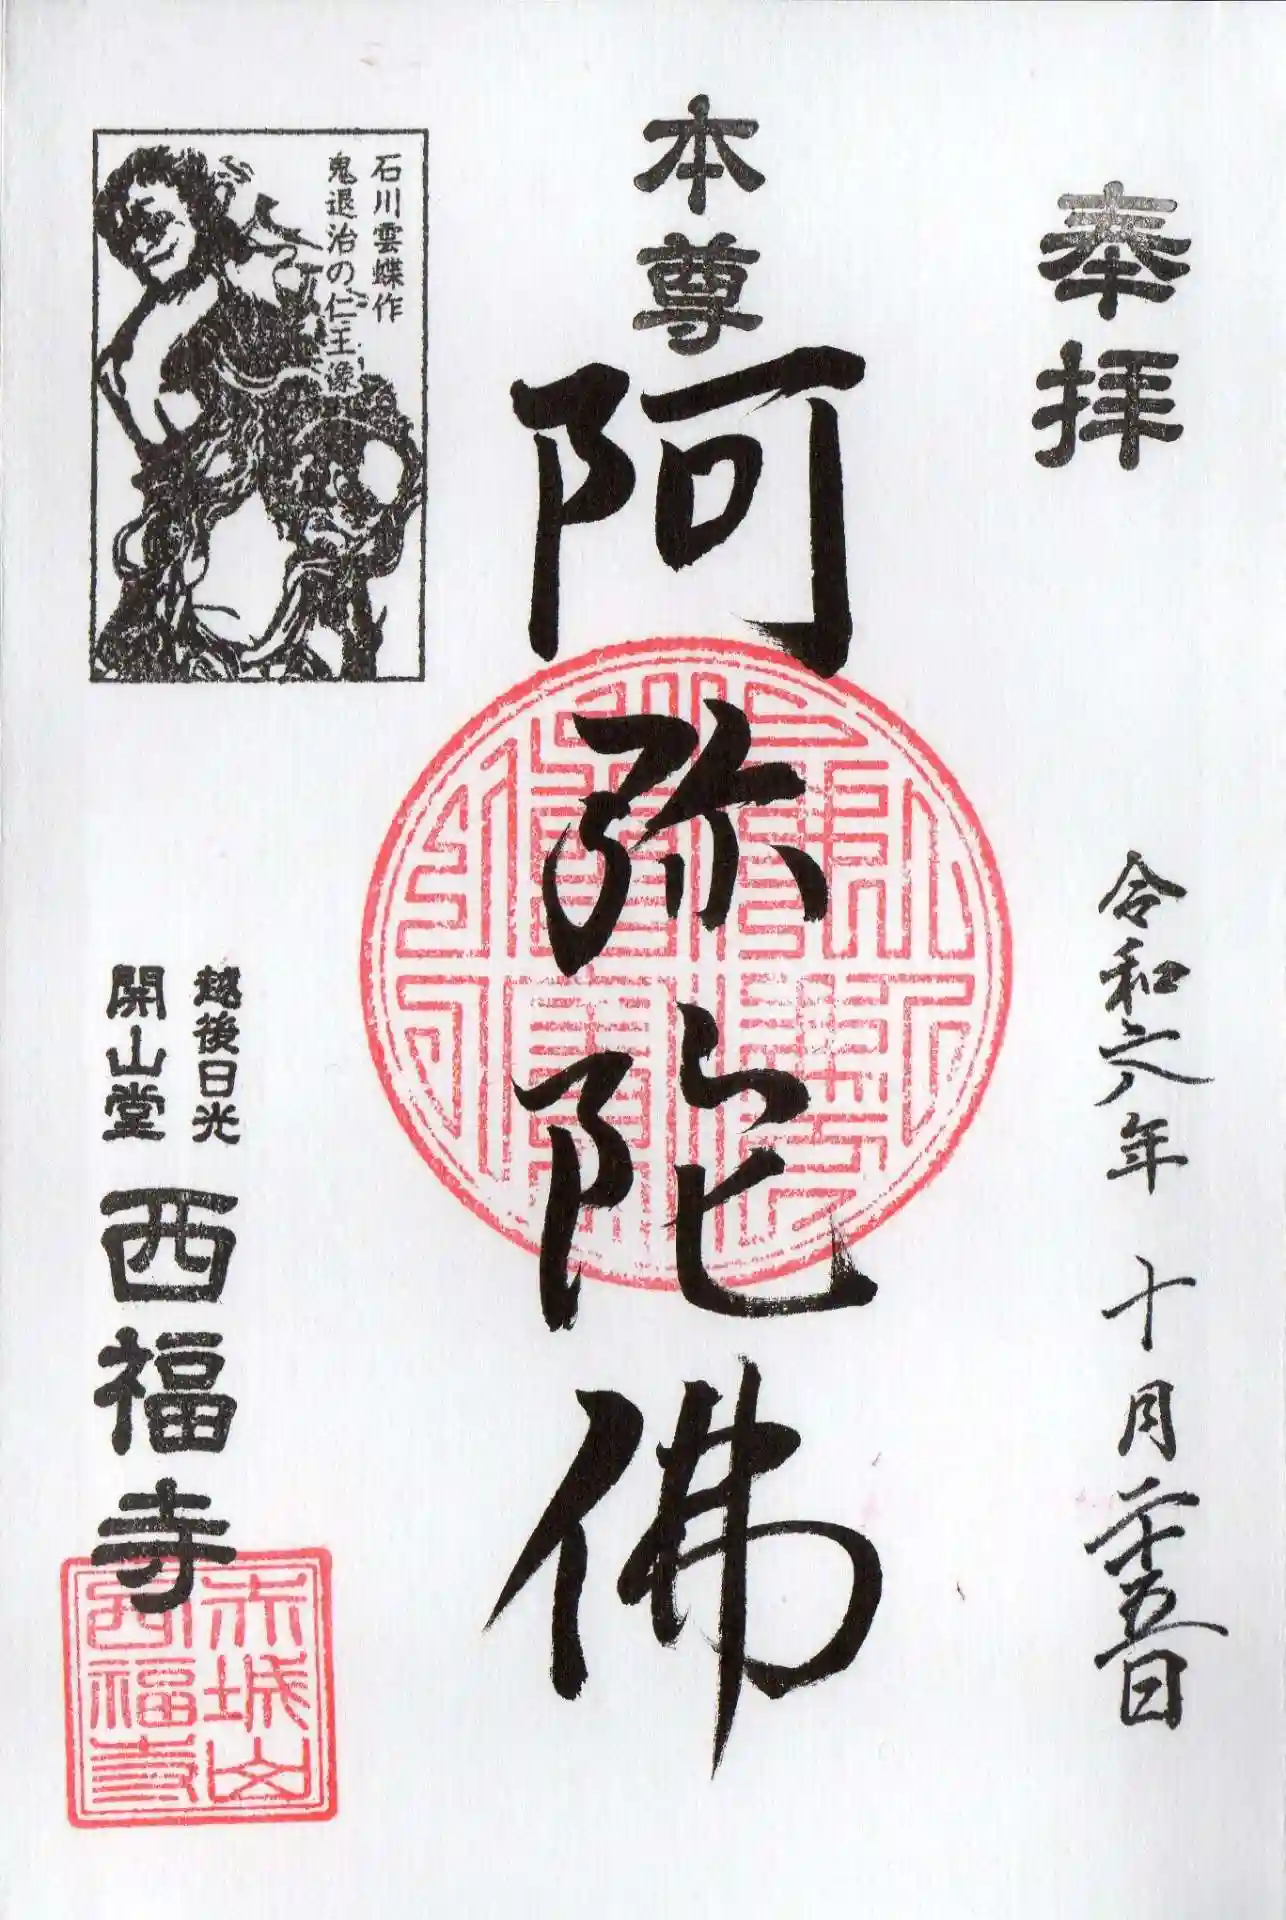 奉拝
令和六年 十月二十五日
本尊
阿弥陀佛
石川雲蝶作
鬼退治の仁王像
越後日光
開山堂
西福寺
赤城山
西福寺